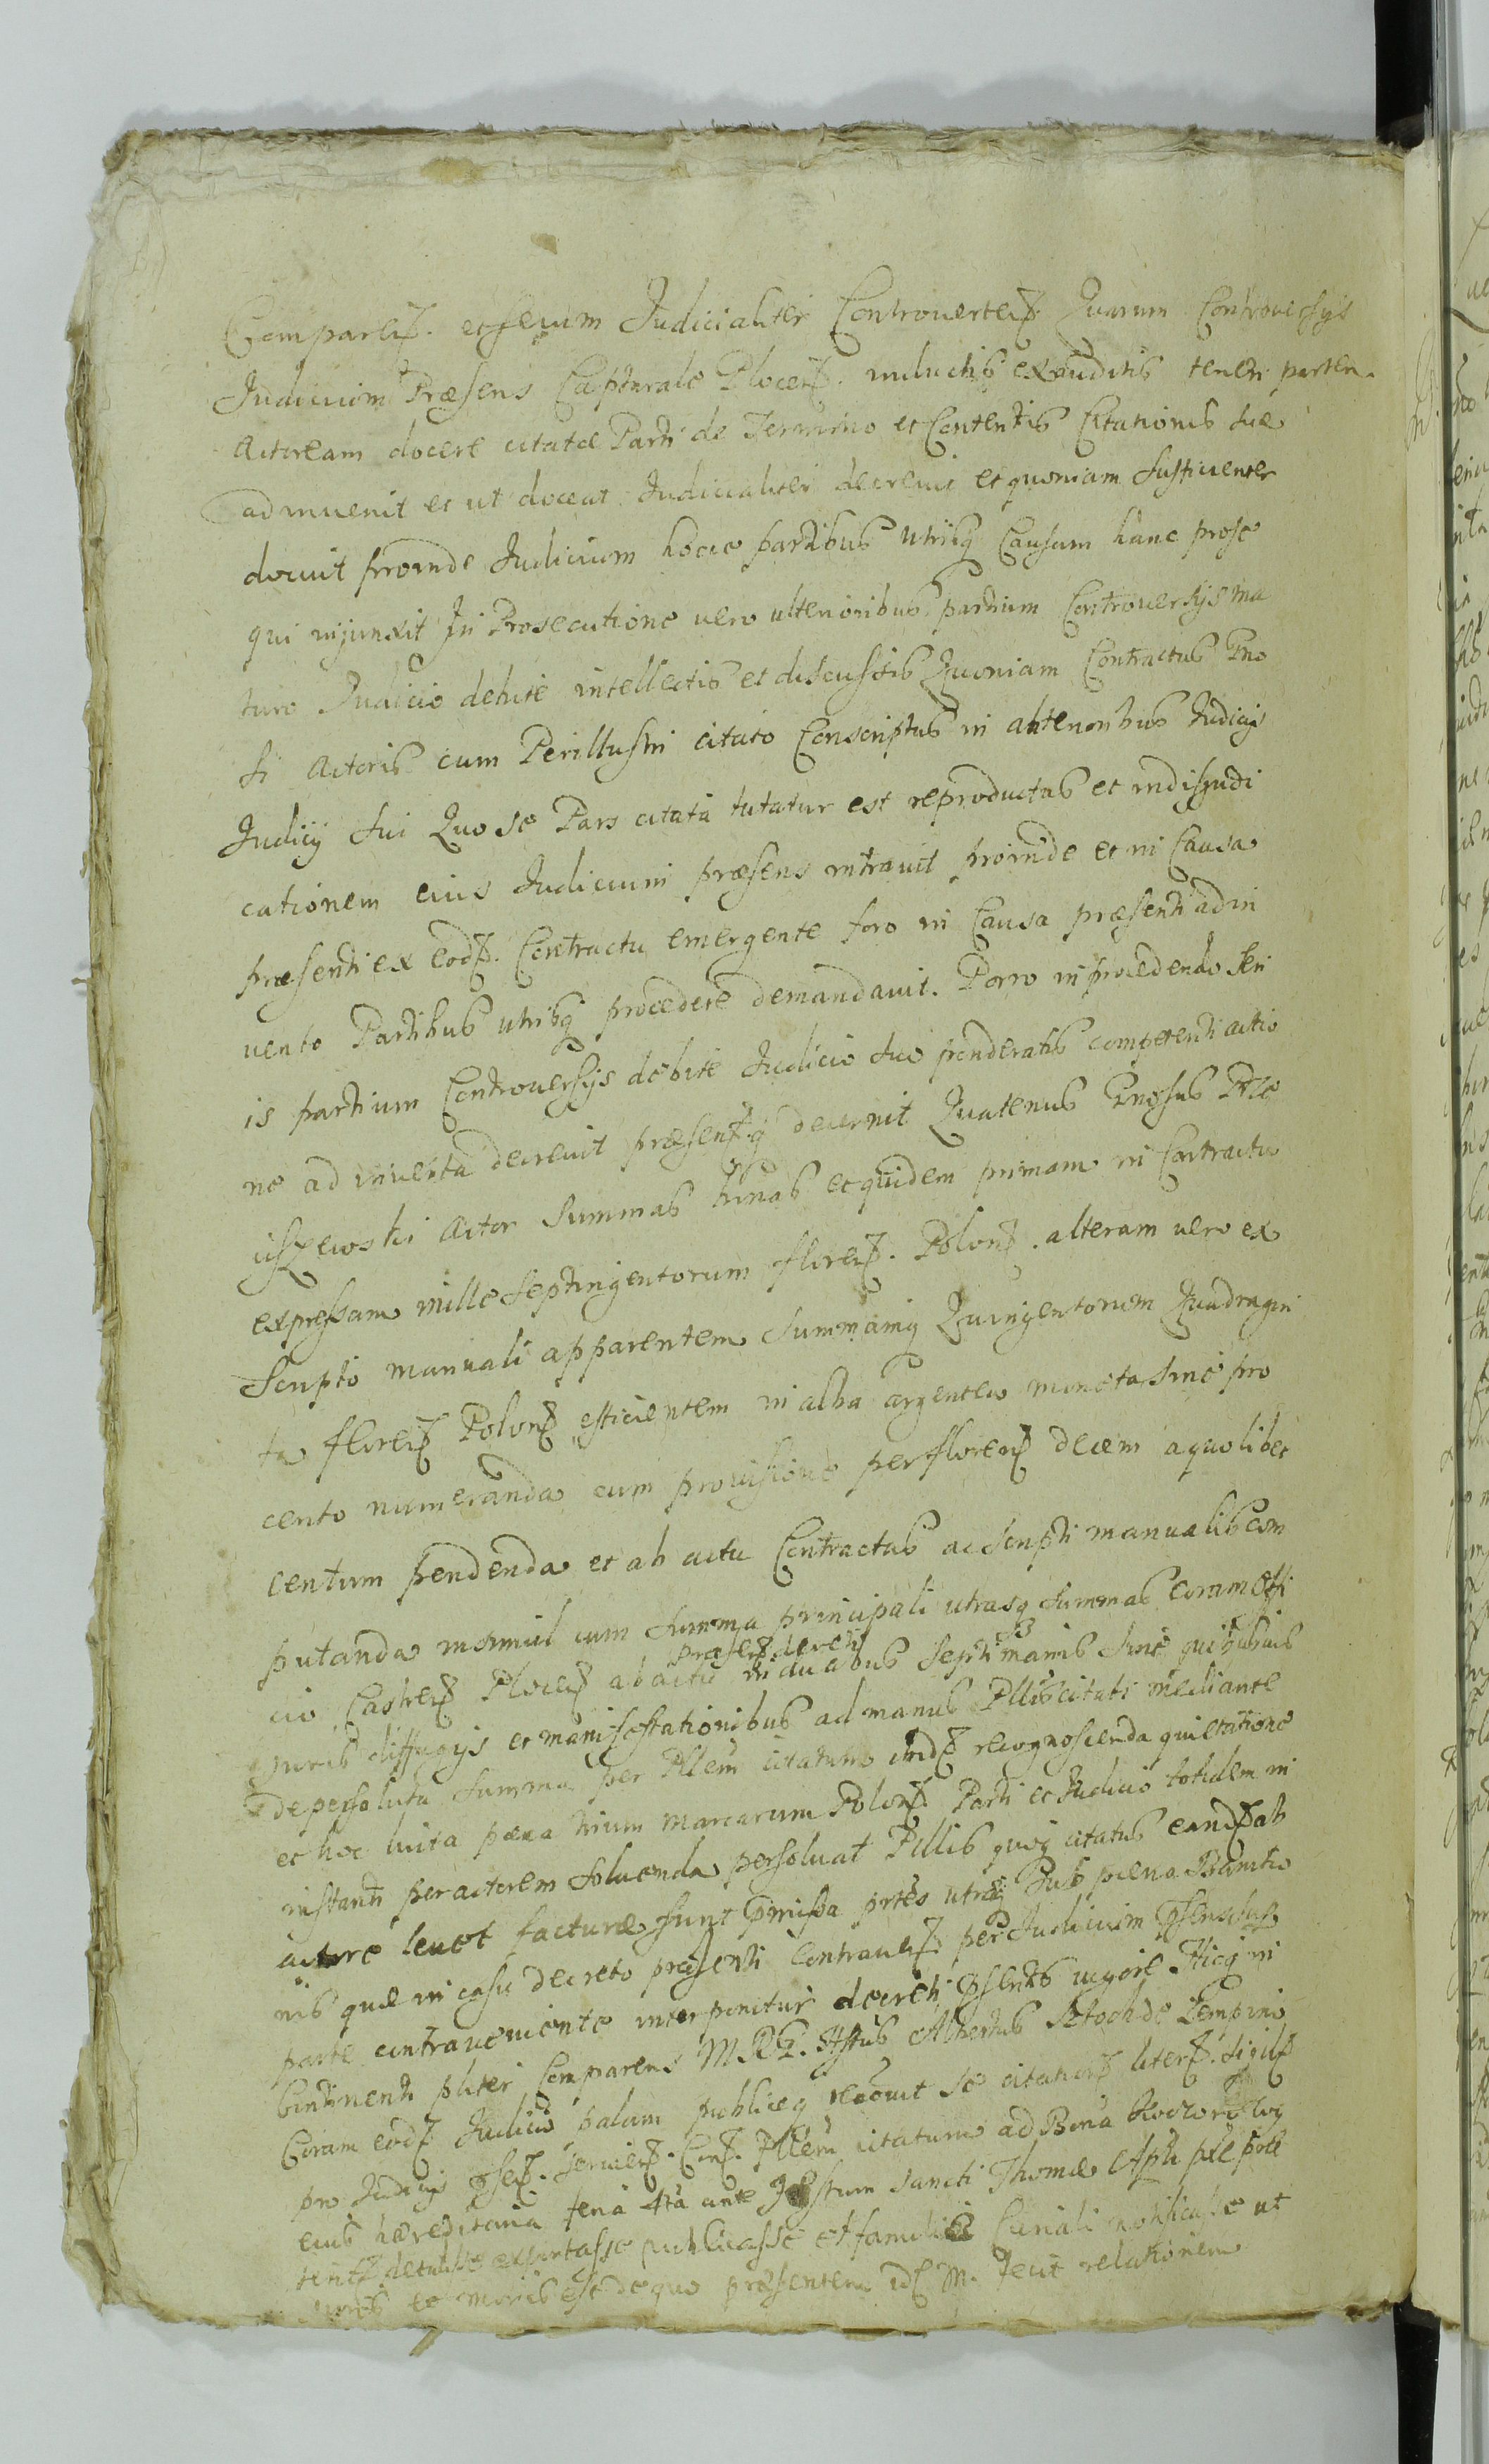 Comparen. et secum Judicialiter Controverten. Quarum Controversys
Judicium Præsens Capturale Plocen. inductis exauditis teneri partem
Actoream docere citatæ Parti de Termino et Contentis Citationis suæ
adinvenit et ut doceat Judicialiter decrevit et quoniam sufficienter
docuit proinde Judicium hocce partibus utrisq Causam hanc prose
qui injunxit In Prosecutione vero ulterioribus partium Controversys ma
turo Judicio debite intellectis et discussis Quoniam Contractus Gno
si Actoris cum Perillustri citato Conscriptus in anterioribus Judicys
Judicy sui Quo se Pars citata tutatur est reproductus et indisjudi
cationem eius Judicium præsens intravit proinde et in Causa
præsenti ex eod. Contractu emergente foro in Causa præsenti adin
vento Partibus utrisq procedere demandavit. Porro in procedendo
is partium Controversys debite Judicio suo ponderatis competenti actio
ne adinventa decrevit præsen.q decernit Quatenus Gnosus
iszewski Actor Summas binas et quidem primam in Contractu
expressam mille Septingentorum floren. Polon. alteram vero ex
Scripto manuali apparentem Summamq Quingentorum Quadragin
ta floren Polon efficientem in alba argentea moneta sine pro
cento numeranda cum provisione per floren decem a quolibet
centum pendenda et ab actu Contractus ac Scripti manualis com
putanda insimul cum summa principali utrasq summas coram Offi
cio Castren Plocen ab actu in duabus Septimanis sine quibusvis
præsen. decreti
juris diffugys et manifestationibus ad manus Pllis citati mediante
de persoluta summa per Pllem citatum ibid recognoscenda quietatione
et hoc luita pæna trium marcarum Polon Parti et Judicio totidem in
instanti per actorem solvenda persolvat Pllis quoq citatus eand ab
actore levet facturæ sunt pmissa ptes utræq sub pæna Banitio
nis quæ in casu decreto præsenti contraven. per Judicium psens sup
parte contraveniente interponitur decreti psentis vigore Hicq in
continenti pliter Comparens M. R. G. Albertus de Lempino
Coram eod Judicio palam publiceq recovit se citation liter. sigill
pro Judicys psen. servien. Con. Pllem citatum ad Bona
eius hæreditaria feria 4ta ante Festum Sancti Thomæ Apli
detulisse exportasse publicasse et familiæ Curiali notificasse ut
juris et moris est de quo præsentem id M. fecit relationem